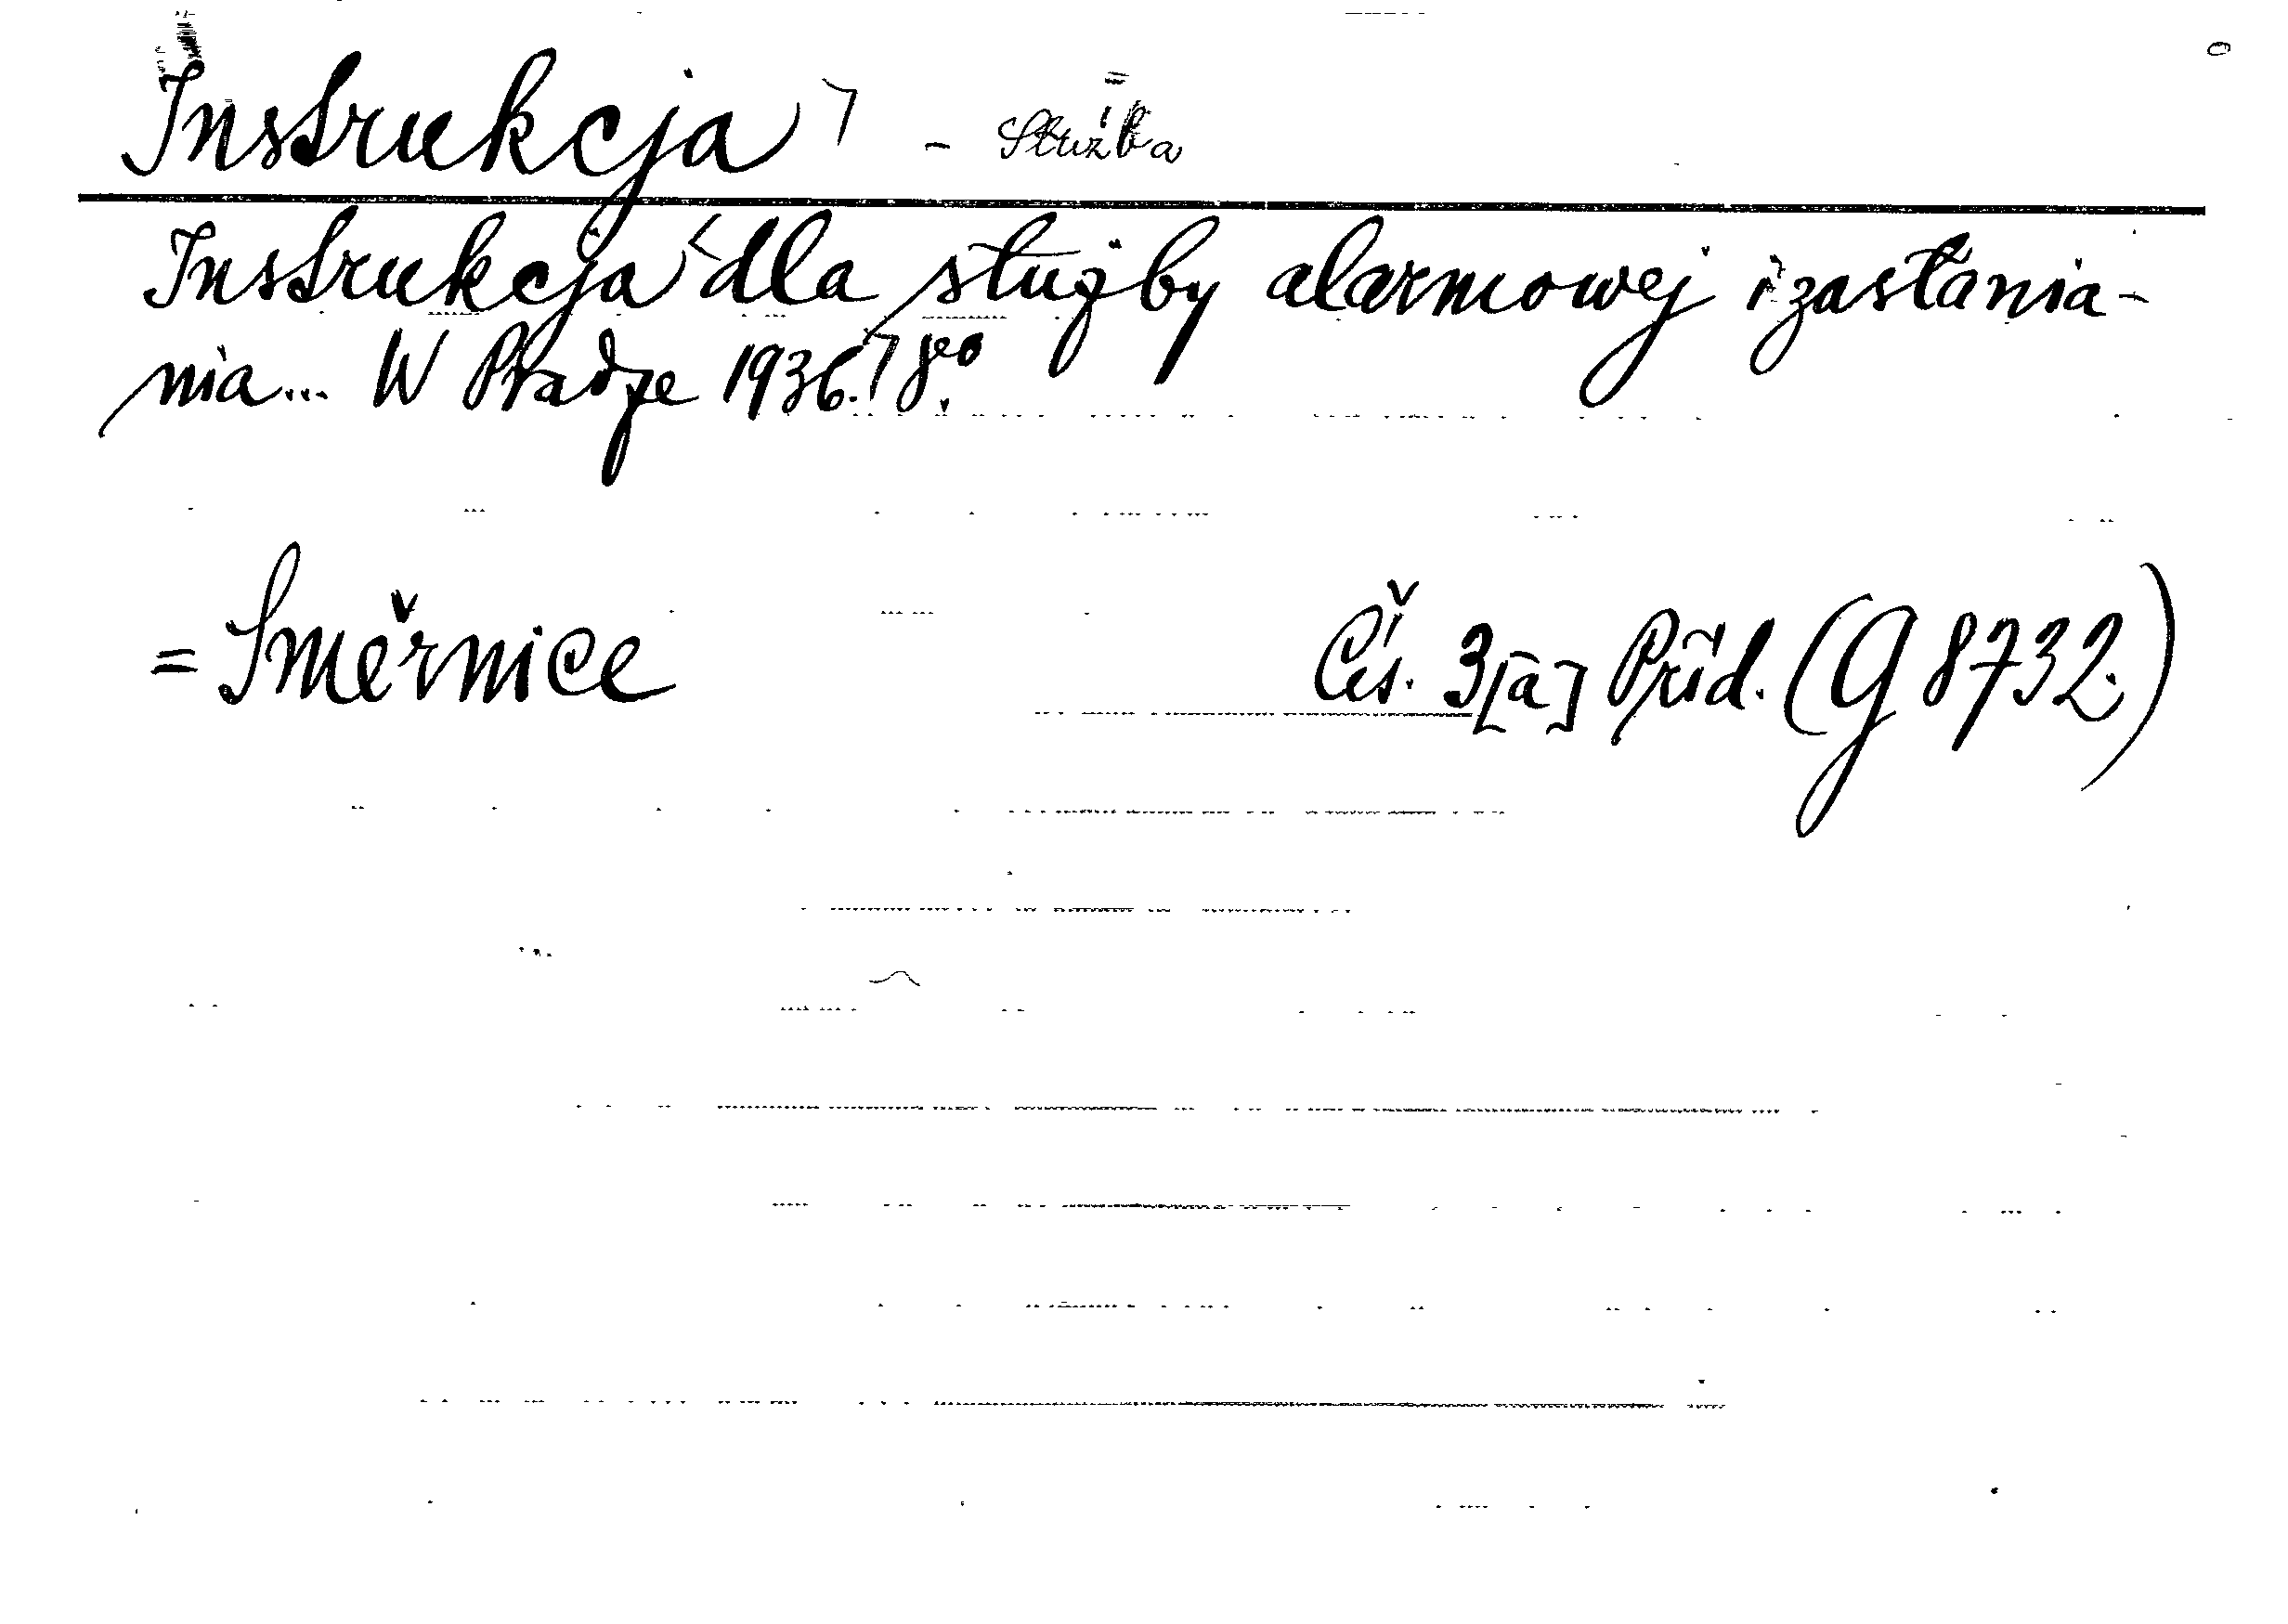 Instrukcja - Služba
Instrukcja dla służby alarmowej i zasłania-
nia... W Pradze 1936. 8°
= Směrnice Čís. 3[a] Příd. (G 8732.)